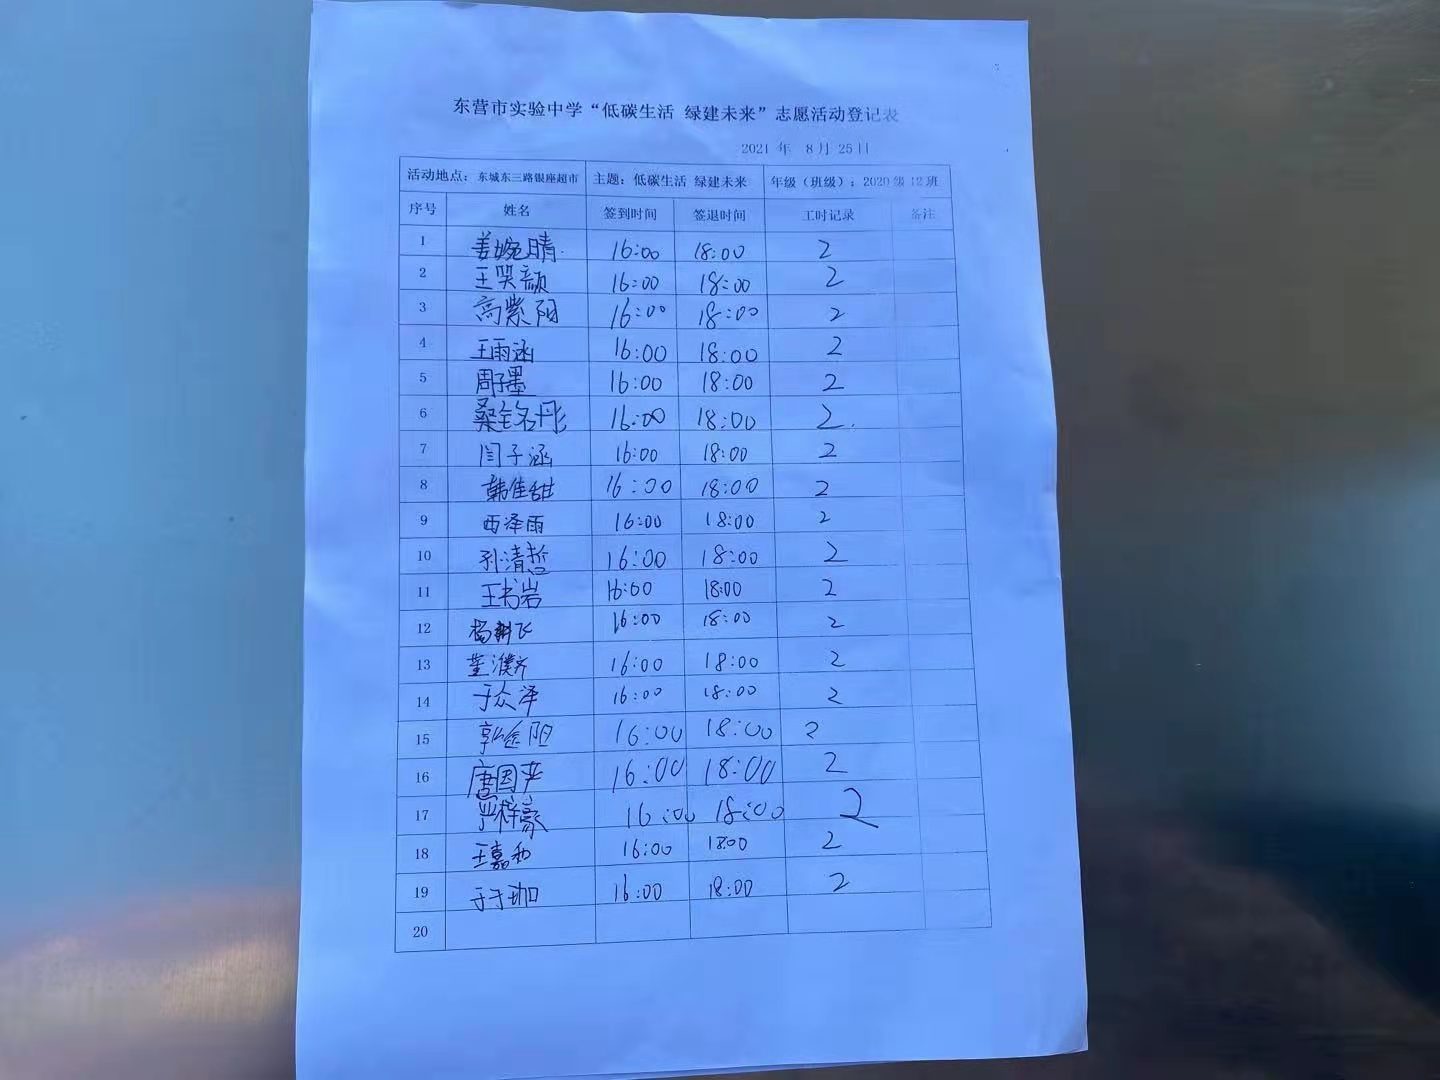 东营市实验中学“低碳生活 绿建未来”志愿活动登记表
2021 年 8 月 25 日
活动地点：东城东三路银座超市 主题：低碳生活 绿建未来 年级（班级）：2020 级 12 班
序号 姓名 签到时间 签退时间 工时记录 备注
1 姜婉晴 16:00 18:00 2
2 王笑颜 16:00 18:00 2
3 高紫阳 16:00 18:00 2
4 王雨涵 16:00 18:00 2
5 周子墨 16:00 18:00 2
6 桑铭彤 16:00 18:00 2
7 闫子涵 16:00 18:00 2
8 韩佳甜 16:00 18:00 2
9 西泽雨 16:00 18:00 2
10 孙清哲 16:00 18:00 2
11 王书岩 16:00 18:00 2
12 杨翔飞 16:00 18:00 2
13 董濮齐 16:00 18:00 2
14 于众泽 16:00 18:00 2
15 16:00 18:00 2
16 唐国严 16:00 18:00 2
17 严梓豪 16:00 18:00 2
18 王嘉和 16:00 18:00 2
19 于于珈 16:00 18:00 2
20